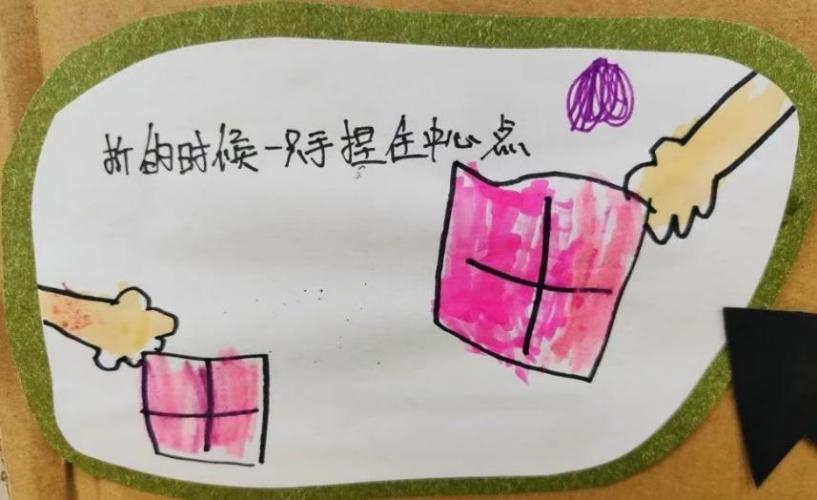 折的时候一只手捏住中心点